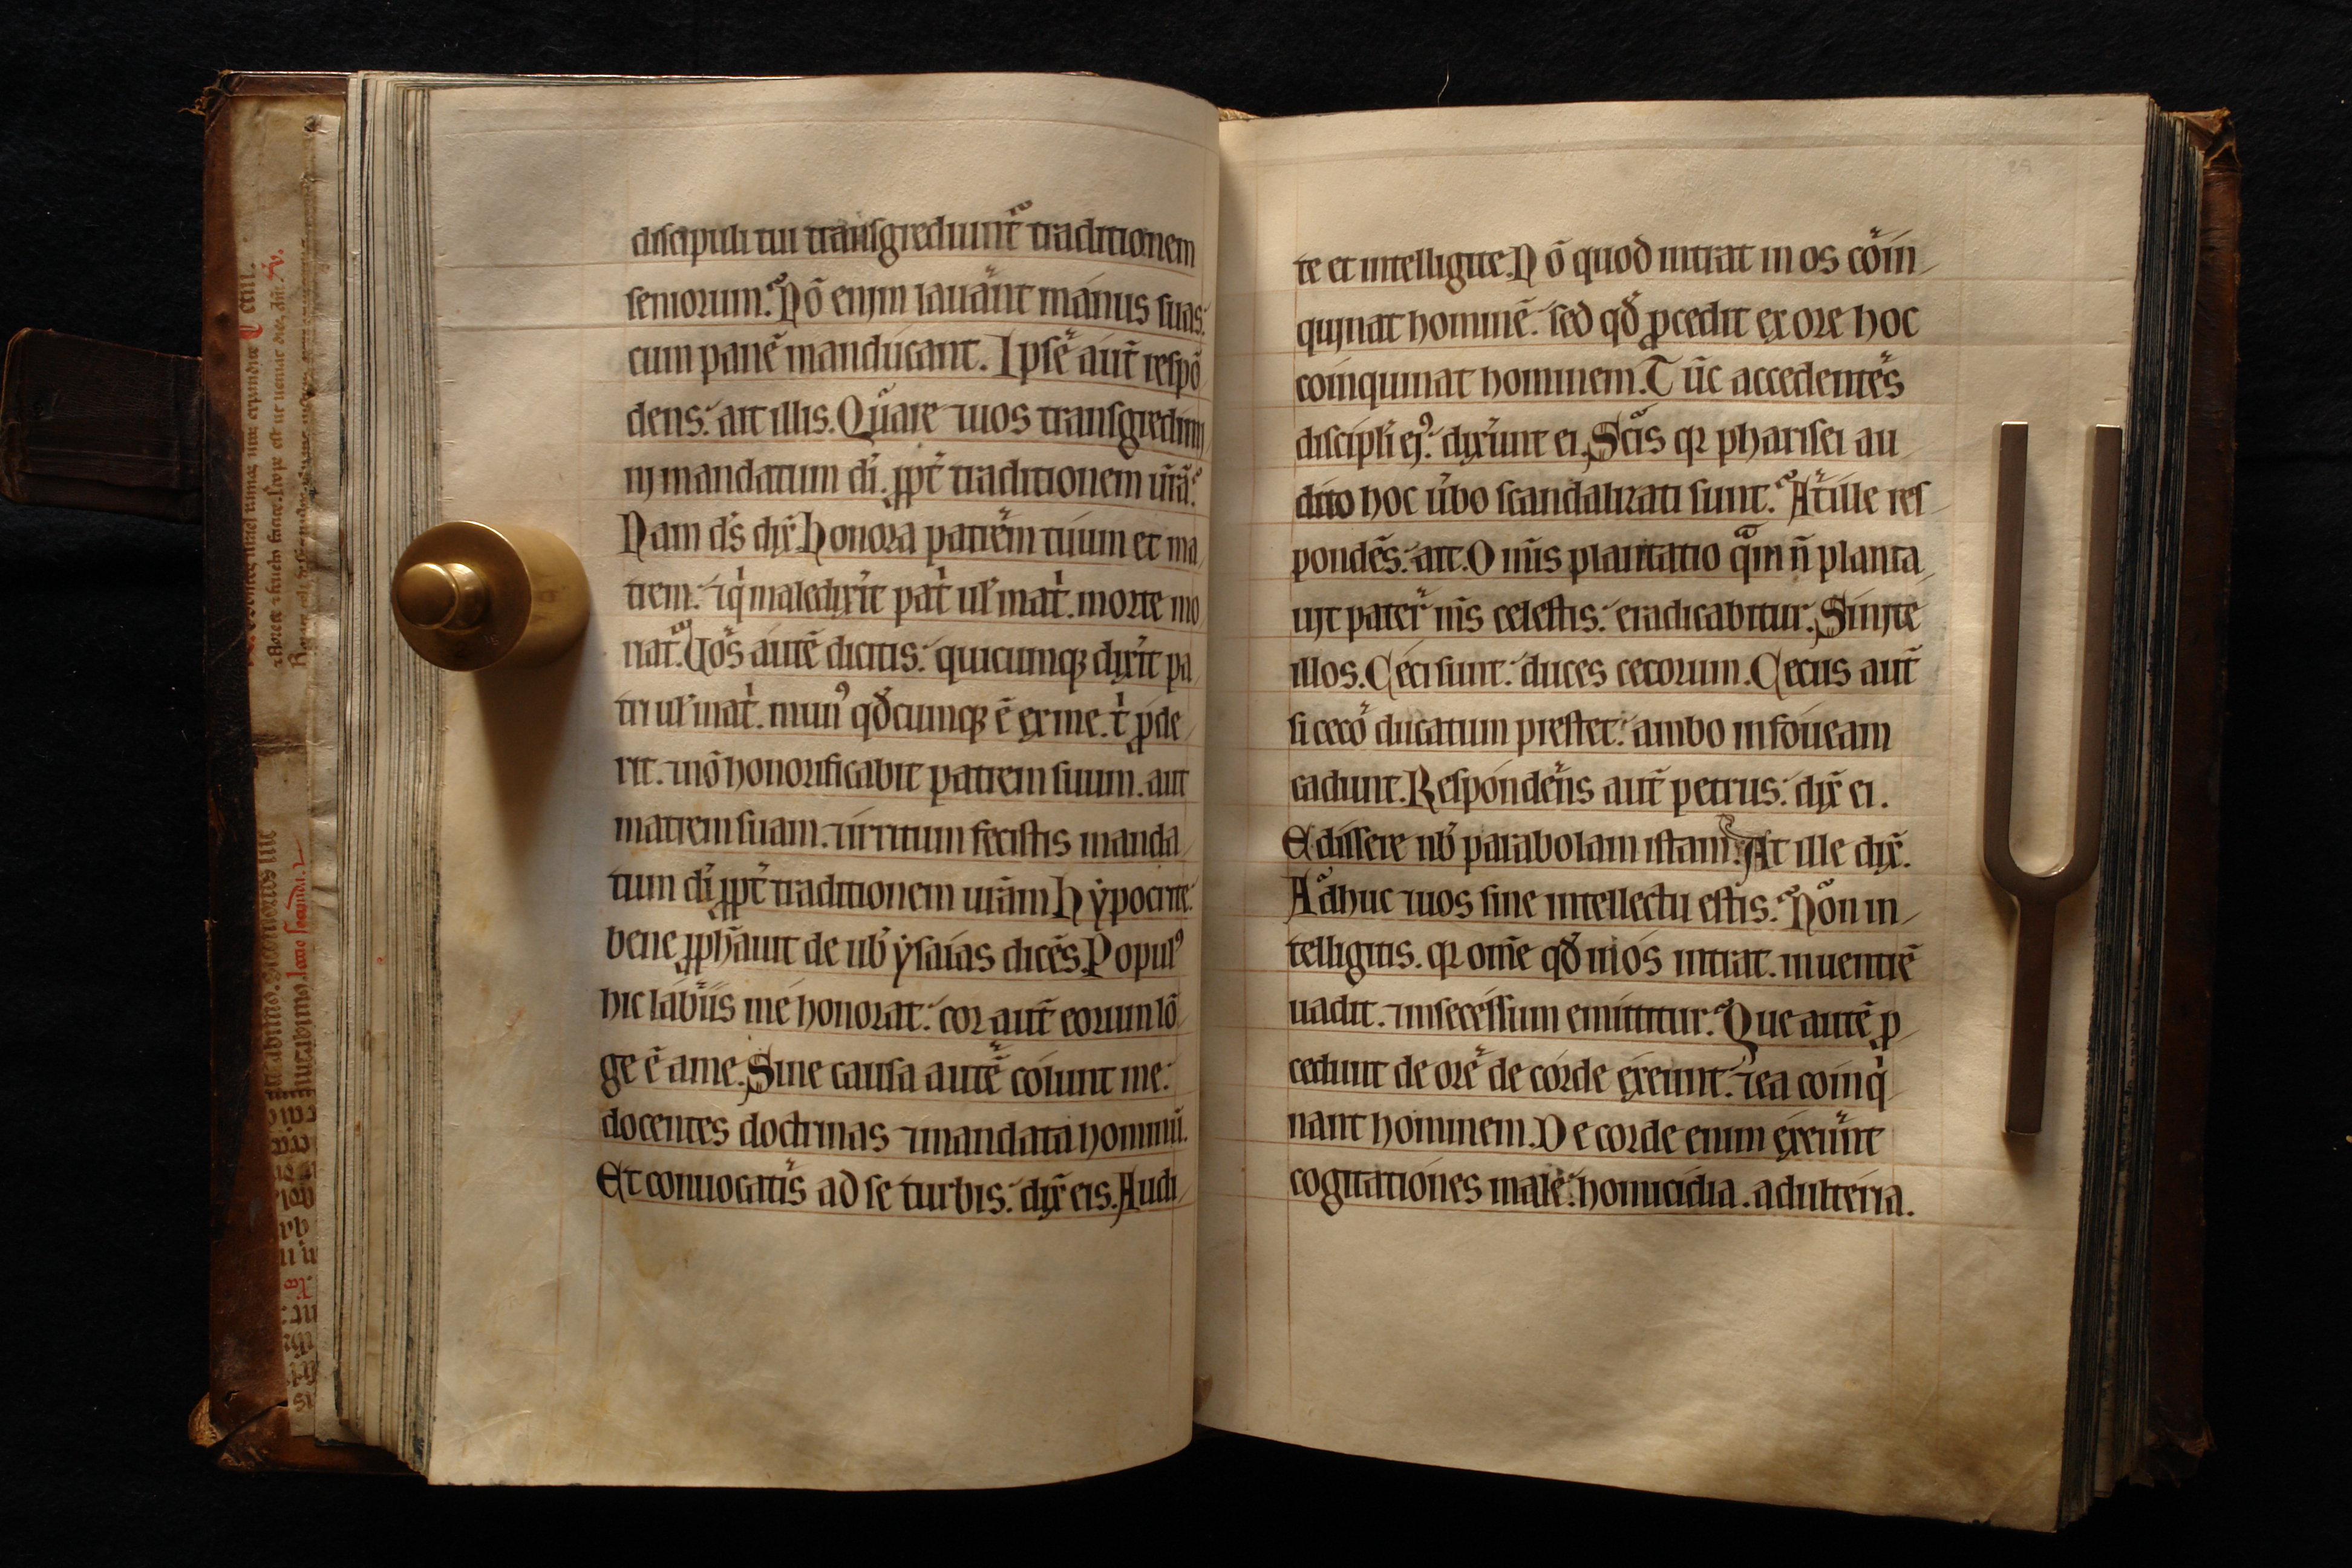 discipuli tui transgrediunt̄ traditionem
seniorum. Nō enim lauānt manus suas:
cum panē manducant. Ipse aut̄ respō
dens: ait illis. Quare ⁊ uos transgredimi
nj mandatum dī. ꝓpt̄ traditionem ūrā.
Nam ds̄ dix̄. Honora patrem tuum et ma
trem: ⁊ q̇ maledix̓it pat̓ ul̓ mat̓. morte mo
riat̄. Uos autē dicitis: quicumqꝫ dix̓it pa
tri ul̓ mat̓. munꝰ qđcumqꝫ ē ex me. t̓ ꝓde
rit. ⁊ nō honorificabit patrem suum. aut
matrem suam. ⁊ irritum fecistis manda
tum dī ꝓpt̄ traditionem urām. Hẏpocrite.
bene ꝓph̄auit de ub̓ ẏsaias dicēs. Populꝰ
hic labiis me honorat: cor aut̄ eorum lō
ge ē a me. Sine causa autē colunt me:
docentes doctrinas ⁊ mandata hominū.
Et conuocatis ad se turbis: dix̄ eis. Audi
te et intelligite. Nō quod intrat in os cōin
quinat hominē: sed qđ ꝓcedit ex ore hoc
coinquinat hominem. Tūc accedentes
discipl̓i ejꝰ: dixr̄unt ei. Scis qꝛ pharisei au
dito hoc u̓bo scandalizati sunt. At ille res
pondēs: ait. Omīs plantatio q̄m n̄ planta
uit pater mīs celestis: eradicabitur. Sinite
illos. Ceci sunt: duces cecorum. Cecus aut̄
si ceco ducatum prestet: ambo in foueam
cadunt. Respondens aut̄ petrus: dix̄ ei.
Edissere nob̓ parabolam istam. At ille dix̄.
Adhuc ⁊ uos sine intellectu estis. Non in
telligitis. qꝛ om̄e qđ in os intrat. in uentrē
uadit. ⁊ in secessum emittitur. Que autē ꝓ
cedunt de ore de corde exeunt. ⁊ ea coinq̇
nant hominem. De corde enim exeunt
cogitationes male: homicidia. adulteria.